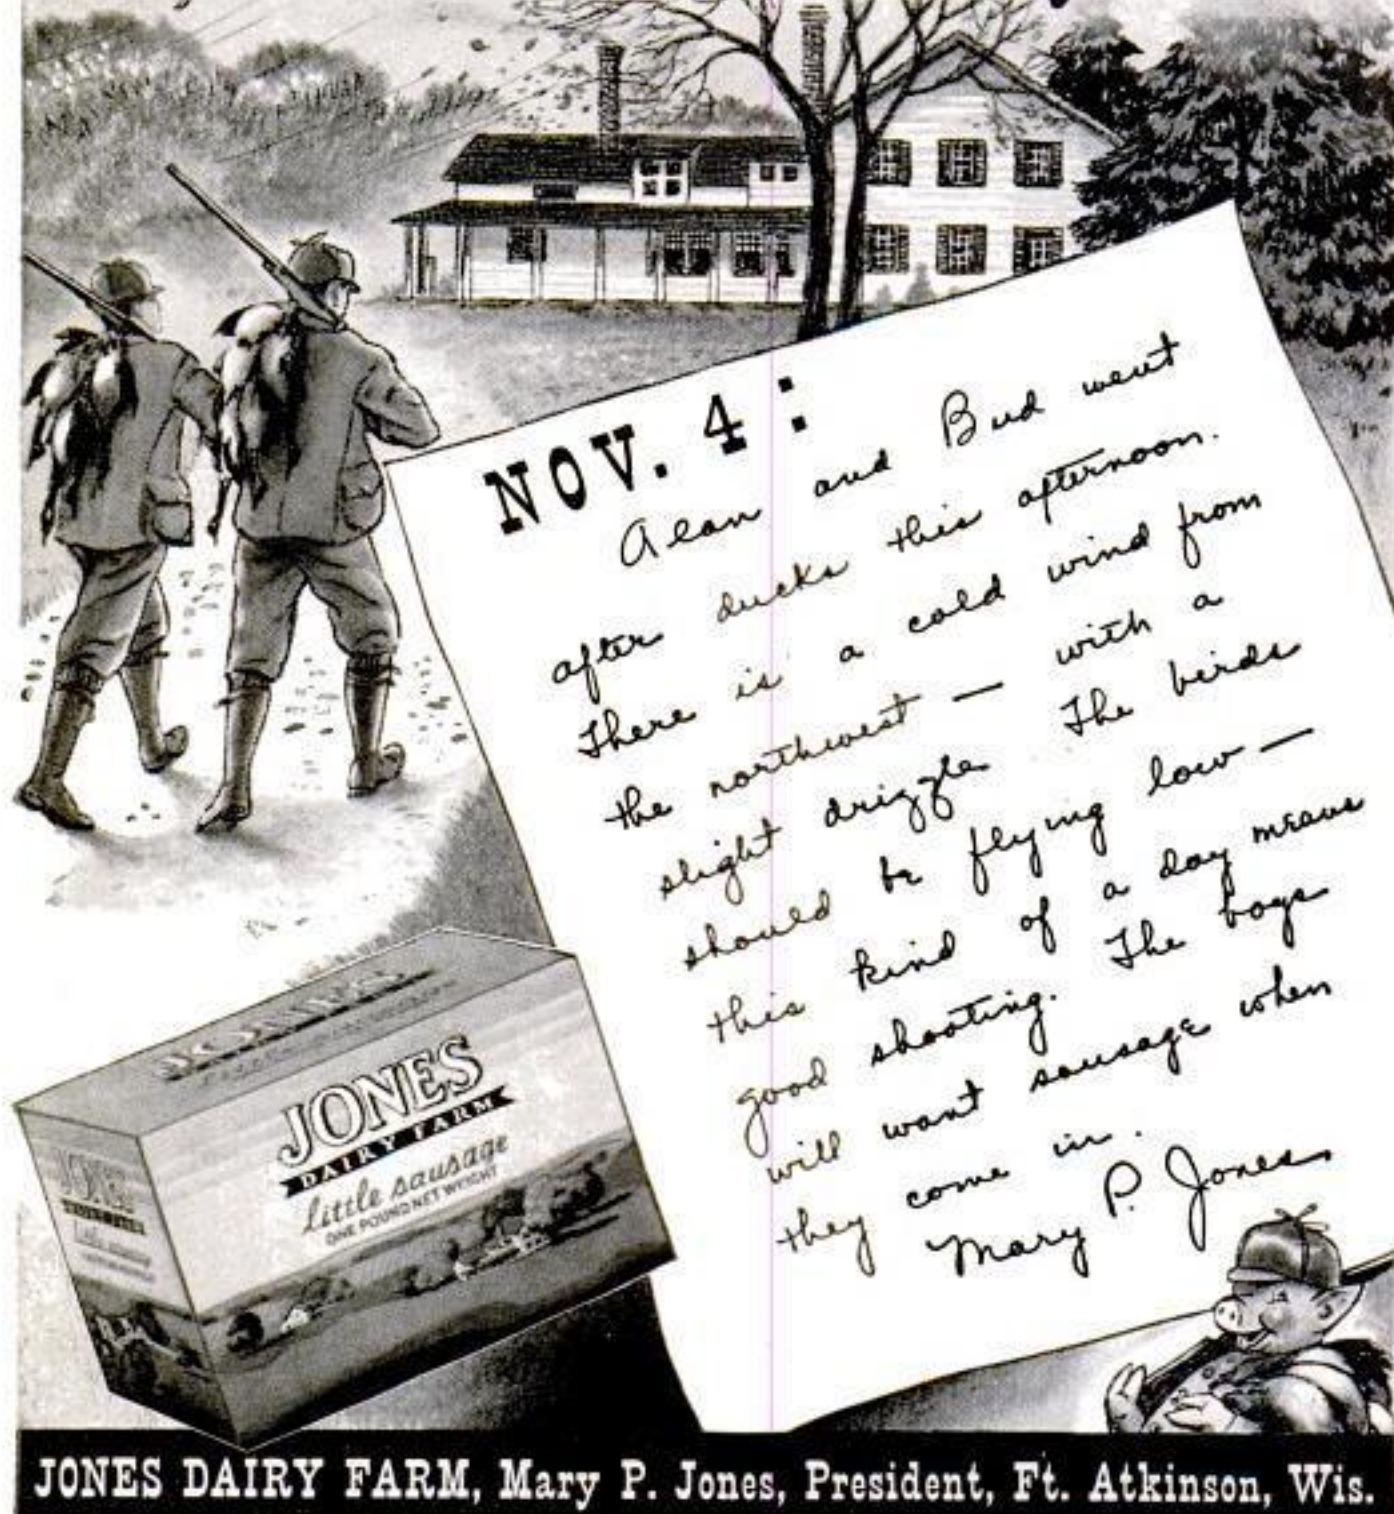 NOV. 4:
Alan and Bud went
after ducks this afternoon.
There is a cold wind from
the northwest — with a
slight drizzle The birds
should be flying low —
this kind of a day means
good shooting. The boys
will want sausage when
they come in.
Mary P. Jones
JONES
JONES
DAIRY FARM
little sausage
ONE POUND NET WEIGHT
JONES
JONES DAIRY FARM, Mary P. Jones, President, Ft. Atkinson, Wis.